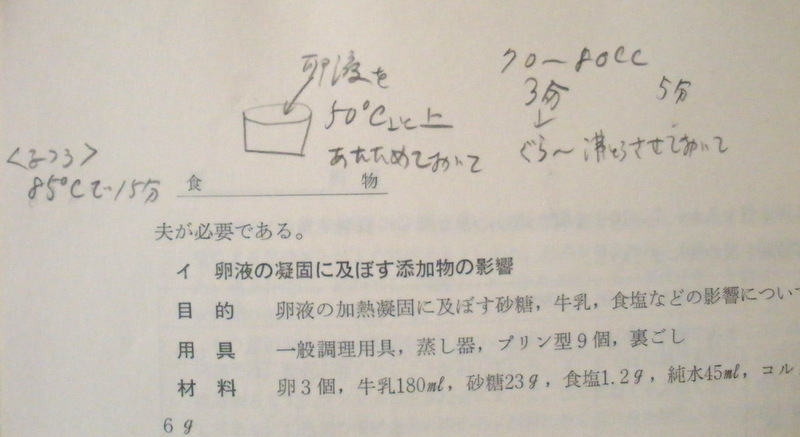 卵液を
50°C以上
あたためておいて
70〜80CC
3分 5分
ぐら〜沸とうさせておいて
<ふつう>
85°Cで15分
食物
夫が必要である。
イ 卵液の凝固に及ぼす添加物の影響
目的 卵液の加熱凝固に及ぼす砂糖，牛乳，食塩などの影響につい
用具 一般調理用具，蒸し器，プリン型9個，裏ごし
材料 卵3個，牛乳180㎖，砂糖23g，食塩1.2g，純水45㎖，コル
6g